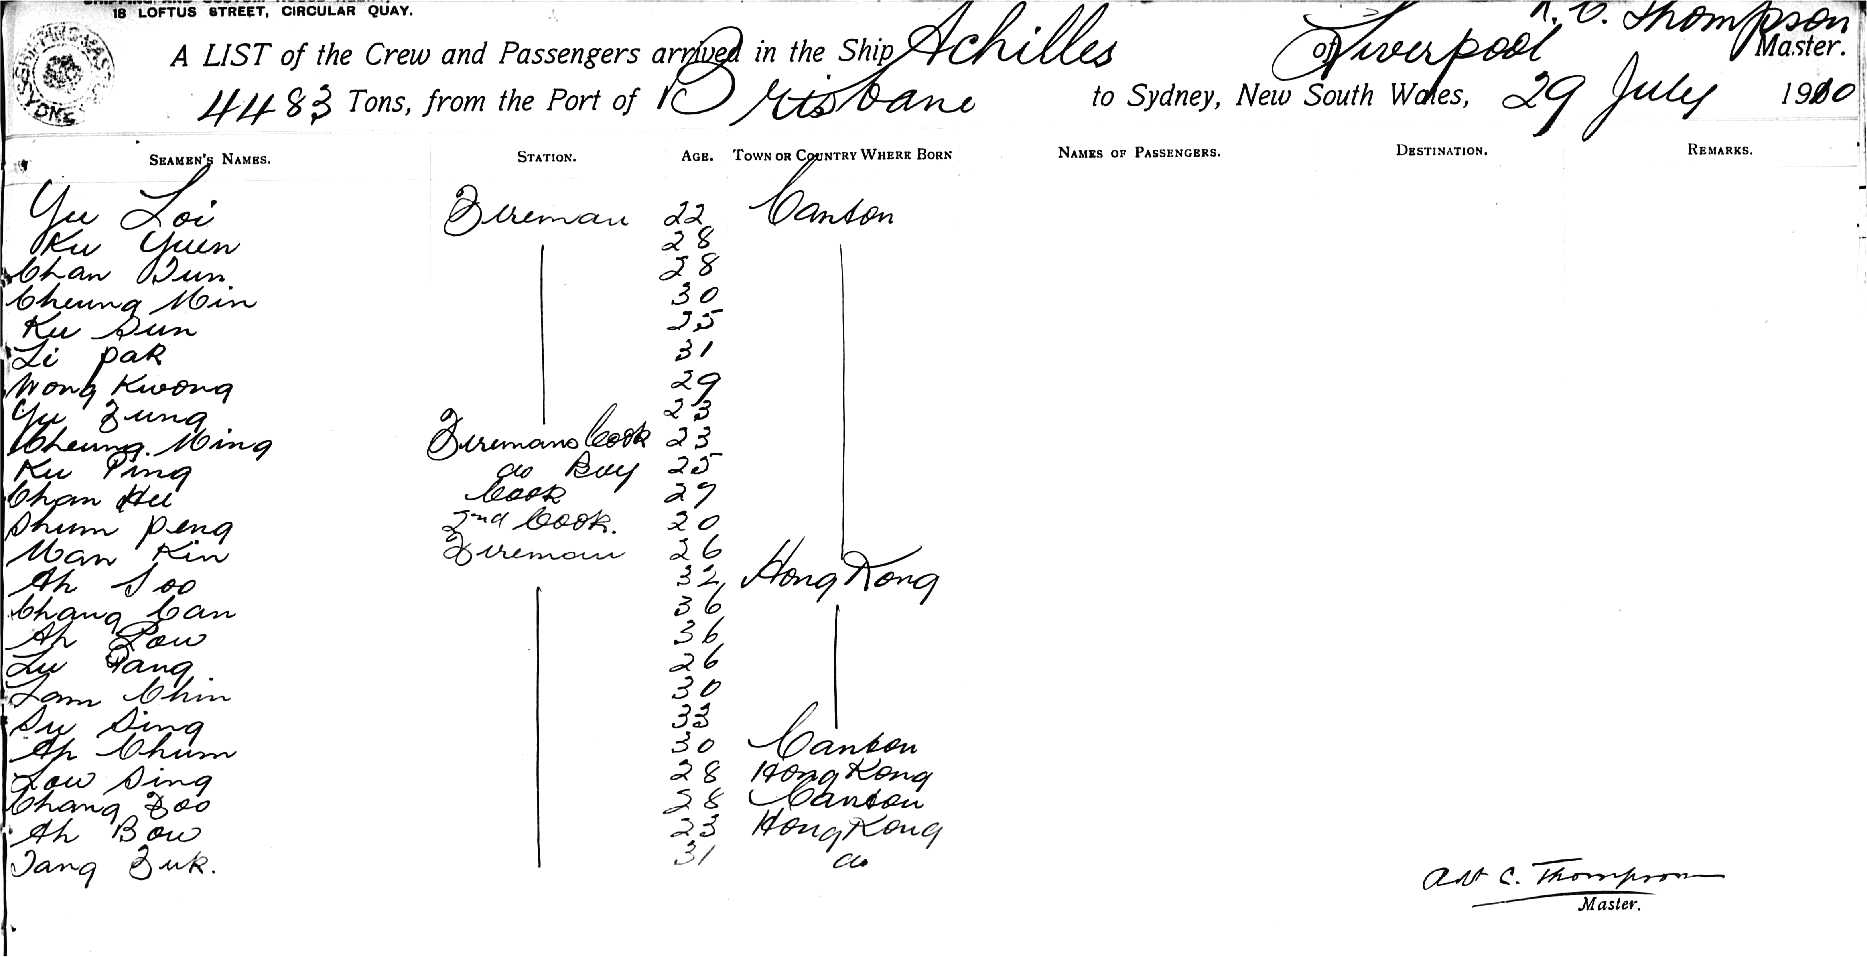 18 LOFTUS STREET, CIRCULAR QUAY.
A LIST of the Crew and Passengers arrived in the Ship Achilles of Liverpool R. C. Thompson Master.
4483 Tons, from the Port of Brisbane to Sydney, New South Wales, 29 July 1910
SEAMEN'S NAMES. STATION. AGE. TOWN OR COUNTRY WHERE BORN NAMES OF PASSENGERS. DESTINATION. REMARKS.
Yu Loi Fireman 22 Canton
Ku Yuen 28
Chan Tun 28
Cheung Min 30
Ku Sun 25
Li pak 31
Wong Kwong 29
Yu Fung 23
Cheung Ming Firemans Cook 23
Ku Ping do Boy 25
Chan Hu Cook 27
Shum peng 2nd Cook. 20
Man Kin Fireman 26
Ah Soo 32 Hong Kong
Chang Can 36
Ah Pow 36
Lu Pang 26
Lam Chin 30
Su Sing 33
Ah Chum 30 Canton
Low Sing 28 Hong Kong
Chang Foo 28 Canton
Ah Bow 23 Hong Kong
Tang Fuk. 31 do
C. Thompson
Master.